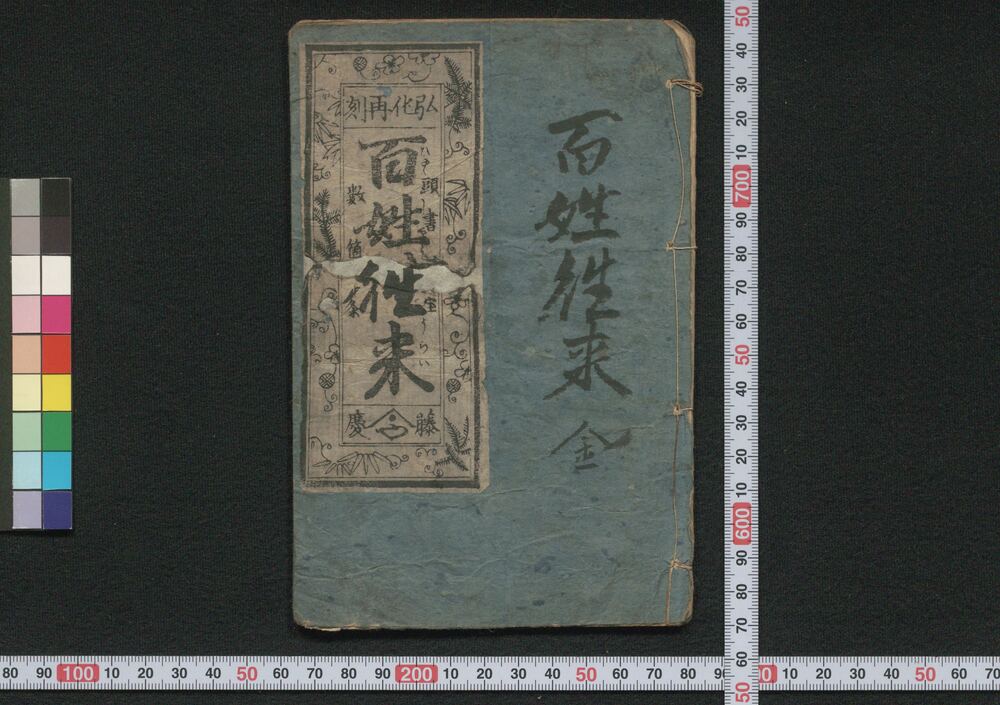 百姓徃来
全
弘化再刻
頭書
百姓徃来
数箇条
うらい
藤
慶
50
40
30
20
10
700
90
80
70
60
50
40
30
20
10
600
90
80
70
60
50
80 90 100 10 20 30 40 50 60 70 80 90 200 10 20 30 40 50 60 70 80 90 10 20 30 40 50 60 70